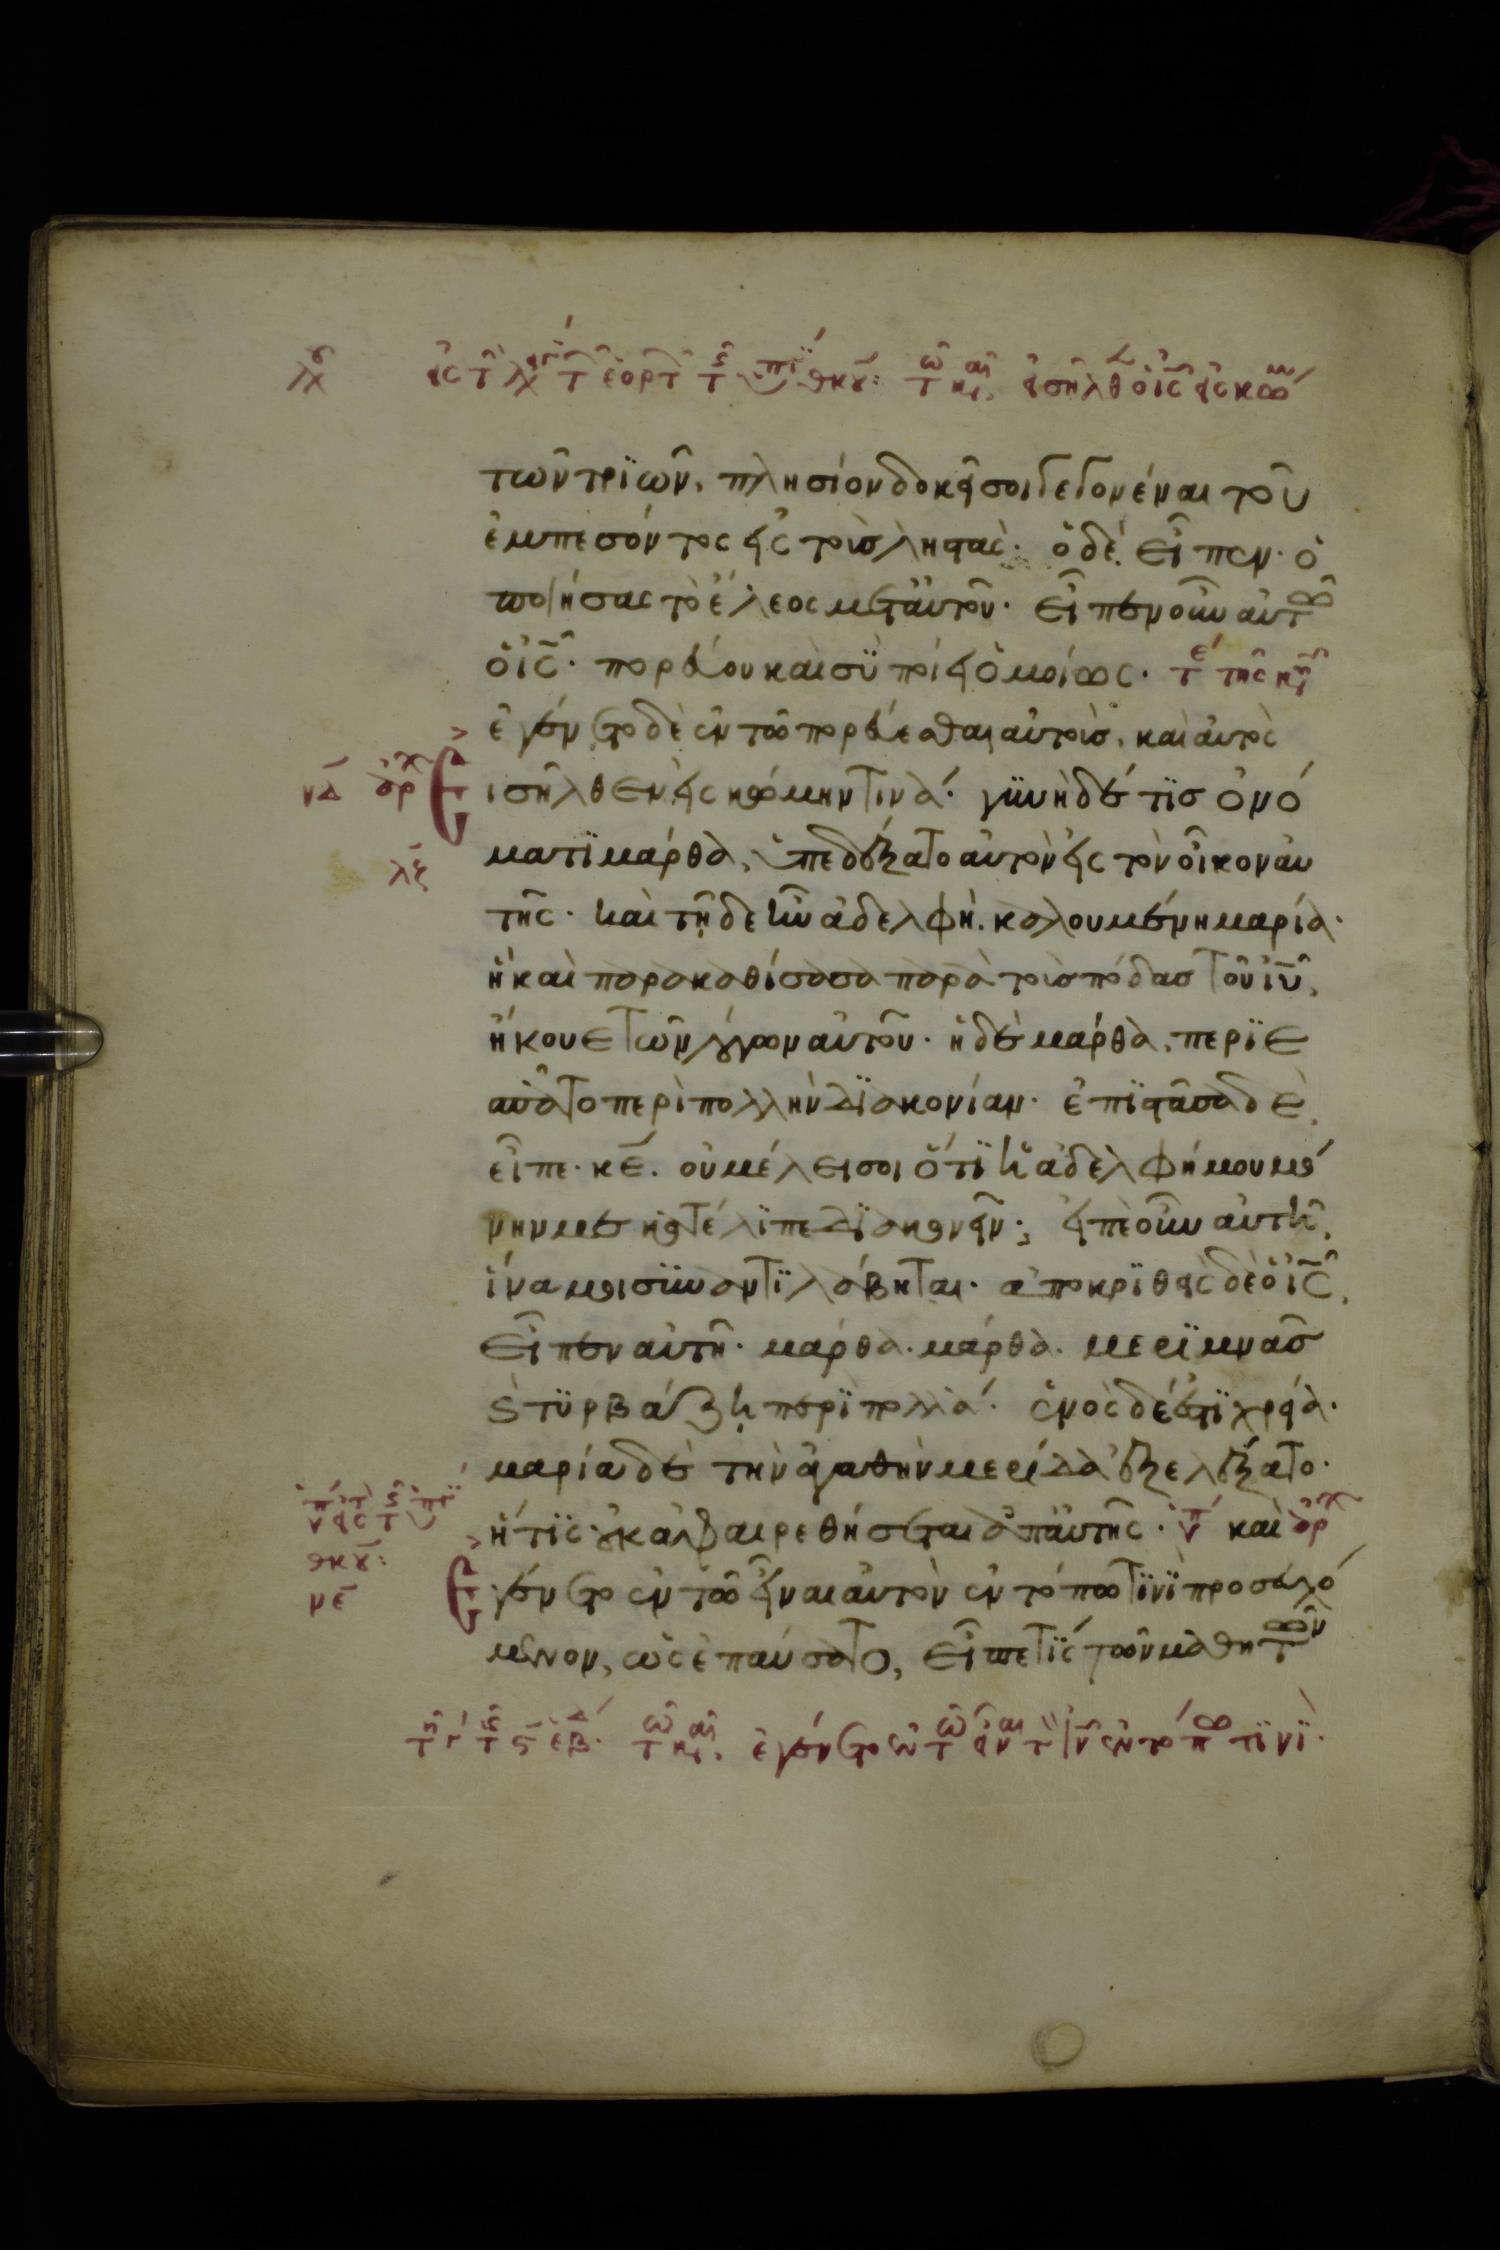 τῶν τριῶν, πλησίον δοκεῖ σοι γεγονέναι τοῦ
ἐμπεσόντος εἰς τοὺς ληστάς· ὁ δὲ εἶπεν· ὁ
ποιήσας τὸ ἔλεος μετ' αὐτοῦ· εἶπεν οὖν αὐτῶ
ὁ ις̅· πορεύου καὶ σὺ ποίει ὁμοίως· τε τῆς κυ
ἐγένετο δὲ ἐν τῶ πορεύεσθαι αὐτοὺς, καὶ αὐτὸς
εἰσῆλθεν εἰς κώμην τινά· γυνὴ δέ τις ὀνό
νδ ἀρχ
ματι μάρθα, ὑπεδέξατο αὐτὸν εἰς τὸν οἶκον αὐ
λξ
τῆς· καὶ τῇδε ἦν ἀδελφὴ καλουμένη μαρία·
ἣ καὶ παρακαθίσασα παρὰ τοὺς πόδας τοῦ ιυ̅,
ἤκουε τῶν λόγων αὐτοῦ· ἡ δὲ μάρθα, περιε
σπᾶτο περὶ πολλὴν διακονίαν· ἐπιστᾶσα δὲ
εἶπε· κε̅. οὐ μέλει σοι ὅτι ἡ ἀδελφή μου μό
νην με κατέλιπε διακονεῖν; εἰπὲ οὖν αὐτῆ,
ἵνα μοι συναντιλάβηται· ἀποκριθεὶς δὲ ὁ ις̅,
εἶπεν αὐτῆ· μάρθα. μάρθα. μεριμνᾶς
ϛ τυρβάζη περὶ πολλά· ἑνὸς δέ ἐστι χρεία·
μαρία δὲ τὴν ἀγαθὴν μερίδα ἐξελέξατο·
ἥτις οὐκ ἀφαιρεθήσεται ἀπ' αὐτῆς· καὶ ἀρχ
θκου:
νε
Ἐγένετο ἐν τῶ εἶναι αὐτὸν ἐν τόπω τινὶ προσευχό
μενον, ὡς ἐπαύσατο, εἶπέ τις τῶν μαθητῶν
τω και, ἐγένετο ἐν τῶ εἶναι τὸν ιν ἐν τόπω τινί·